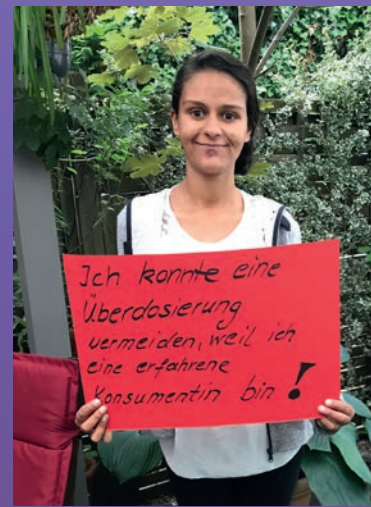 Ich konnte eine
Überdosierung
vermeiden, weil ich
eine erfahrene
Konsumentin bin !